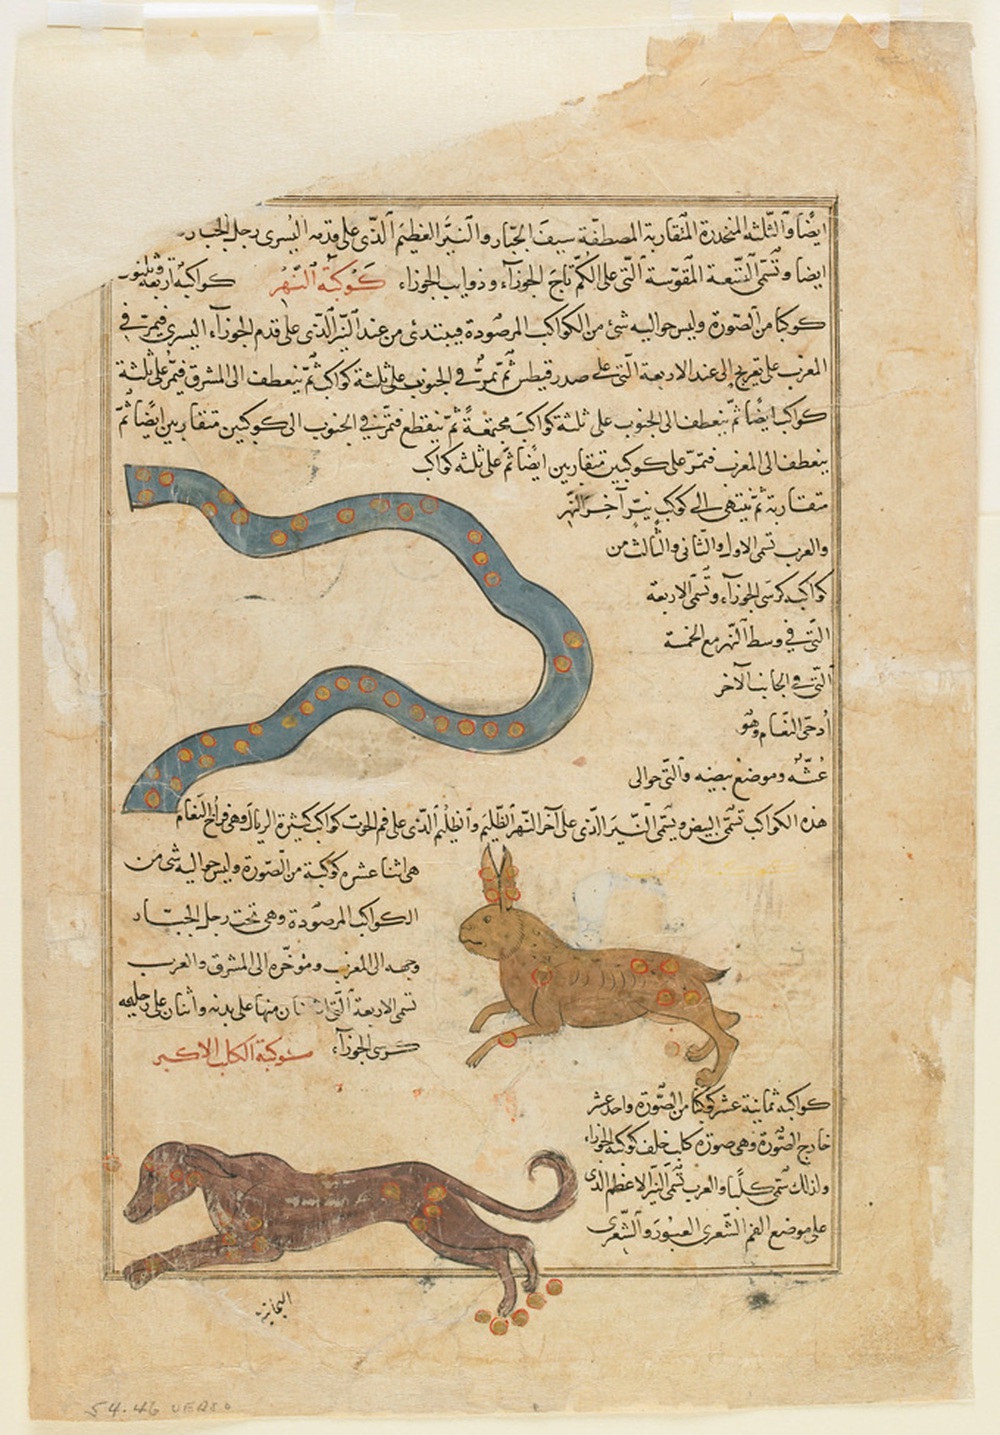 ايضًا والثلثة المنحدرة المتقاربة المصطفّة سيف الجبّار والنيّر العظيم الذي على قدمه اليسرى رجل الجبار
ايضا وتسمى التسعة المقوّسة التى على الكم تاج الجوزاء وذوايب الجوزاء كوكبة النهر كواكبه اربعة وثلثون
كوكبا من الصّورة وليس حواليه شئ من الكواكب المرصودة فيبتدئ من عند النيّر الذى على قدم الجوزاء اليسرى فيمرّ فى
المغرب على تعريج إلى عند الاربعة التى على صدر قيطس ثمّ تمرّ فى الجنوب على ثلثة كواكب ثمّ ينعطف الى المشرق فيمرّ على ثلثة
كواكب ايضًا ثمّ ينعطف الى الجنوب على ثلثة كواكب مجتمعة ثمّ ينقطع فتمرّ فى الجنوب الى كوكبين متقاربين ايضًا ثمّ
ينعطف الى المغرب فتمرّ على كوكبين متقاربين ايضًا ثمّ على ثلثه كواكب
متقاربة ثمّ ينتهى الى كوكب نيّر آخر النّهر
والعرب تسمى الاول والثّانى والثالث من
كواكبه كرسى الجوزاء وتسمّى الاربعة
التّى فى وسط النهر مع الخمسة
التّى فى الجانب الآخر
أدحىّ النعام وهو
عُشّه وموضع بيضه والتّى حوالى
هذه الكواكب تسمّى البيض ويسمّى النّير الذى على آخر النّهر الظّليم والظليم الذّى على فم الحوت كواكب كثيرة الريال وهى فراخ النعام
هى اثنا عشره كوكبة من الصّورة وليس حواليه شى من
الكواكب المرصودة وهى تحت رجل الجبّار
وجهه الى المغرب وموخّره الى المشرق والعرب
تسمى الاربعة التّى اثنان منها على بدنه واثنان على رجليه
كرسى الجوزاء كوكبة الكلب الاكبر
كواكبه ثمانية عشر كوكبًا من الصّورة واحد عشر
خارج الصّورة وهى صورة كلب خلف كوكبة الجوزاء
ولذلك سمّى كلبًا والعرب تسمّى النيّر الاعظم الذى
على موضع الفم الشّعرى العبور والشّعرى
اليمانية
54.46 VERSO